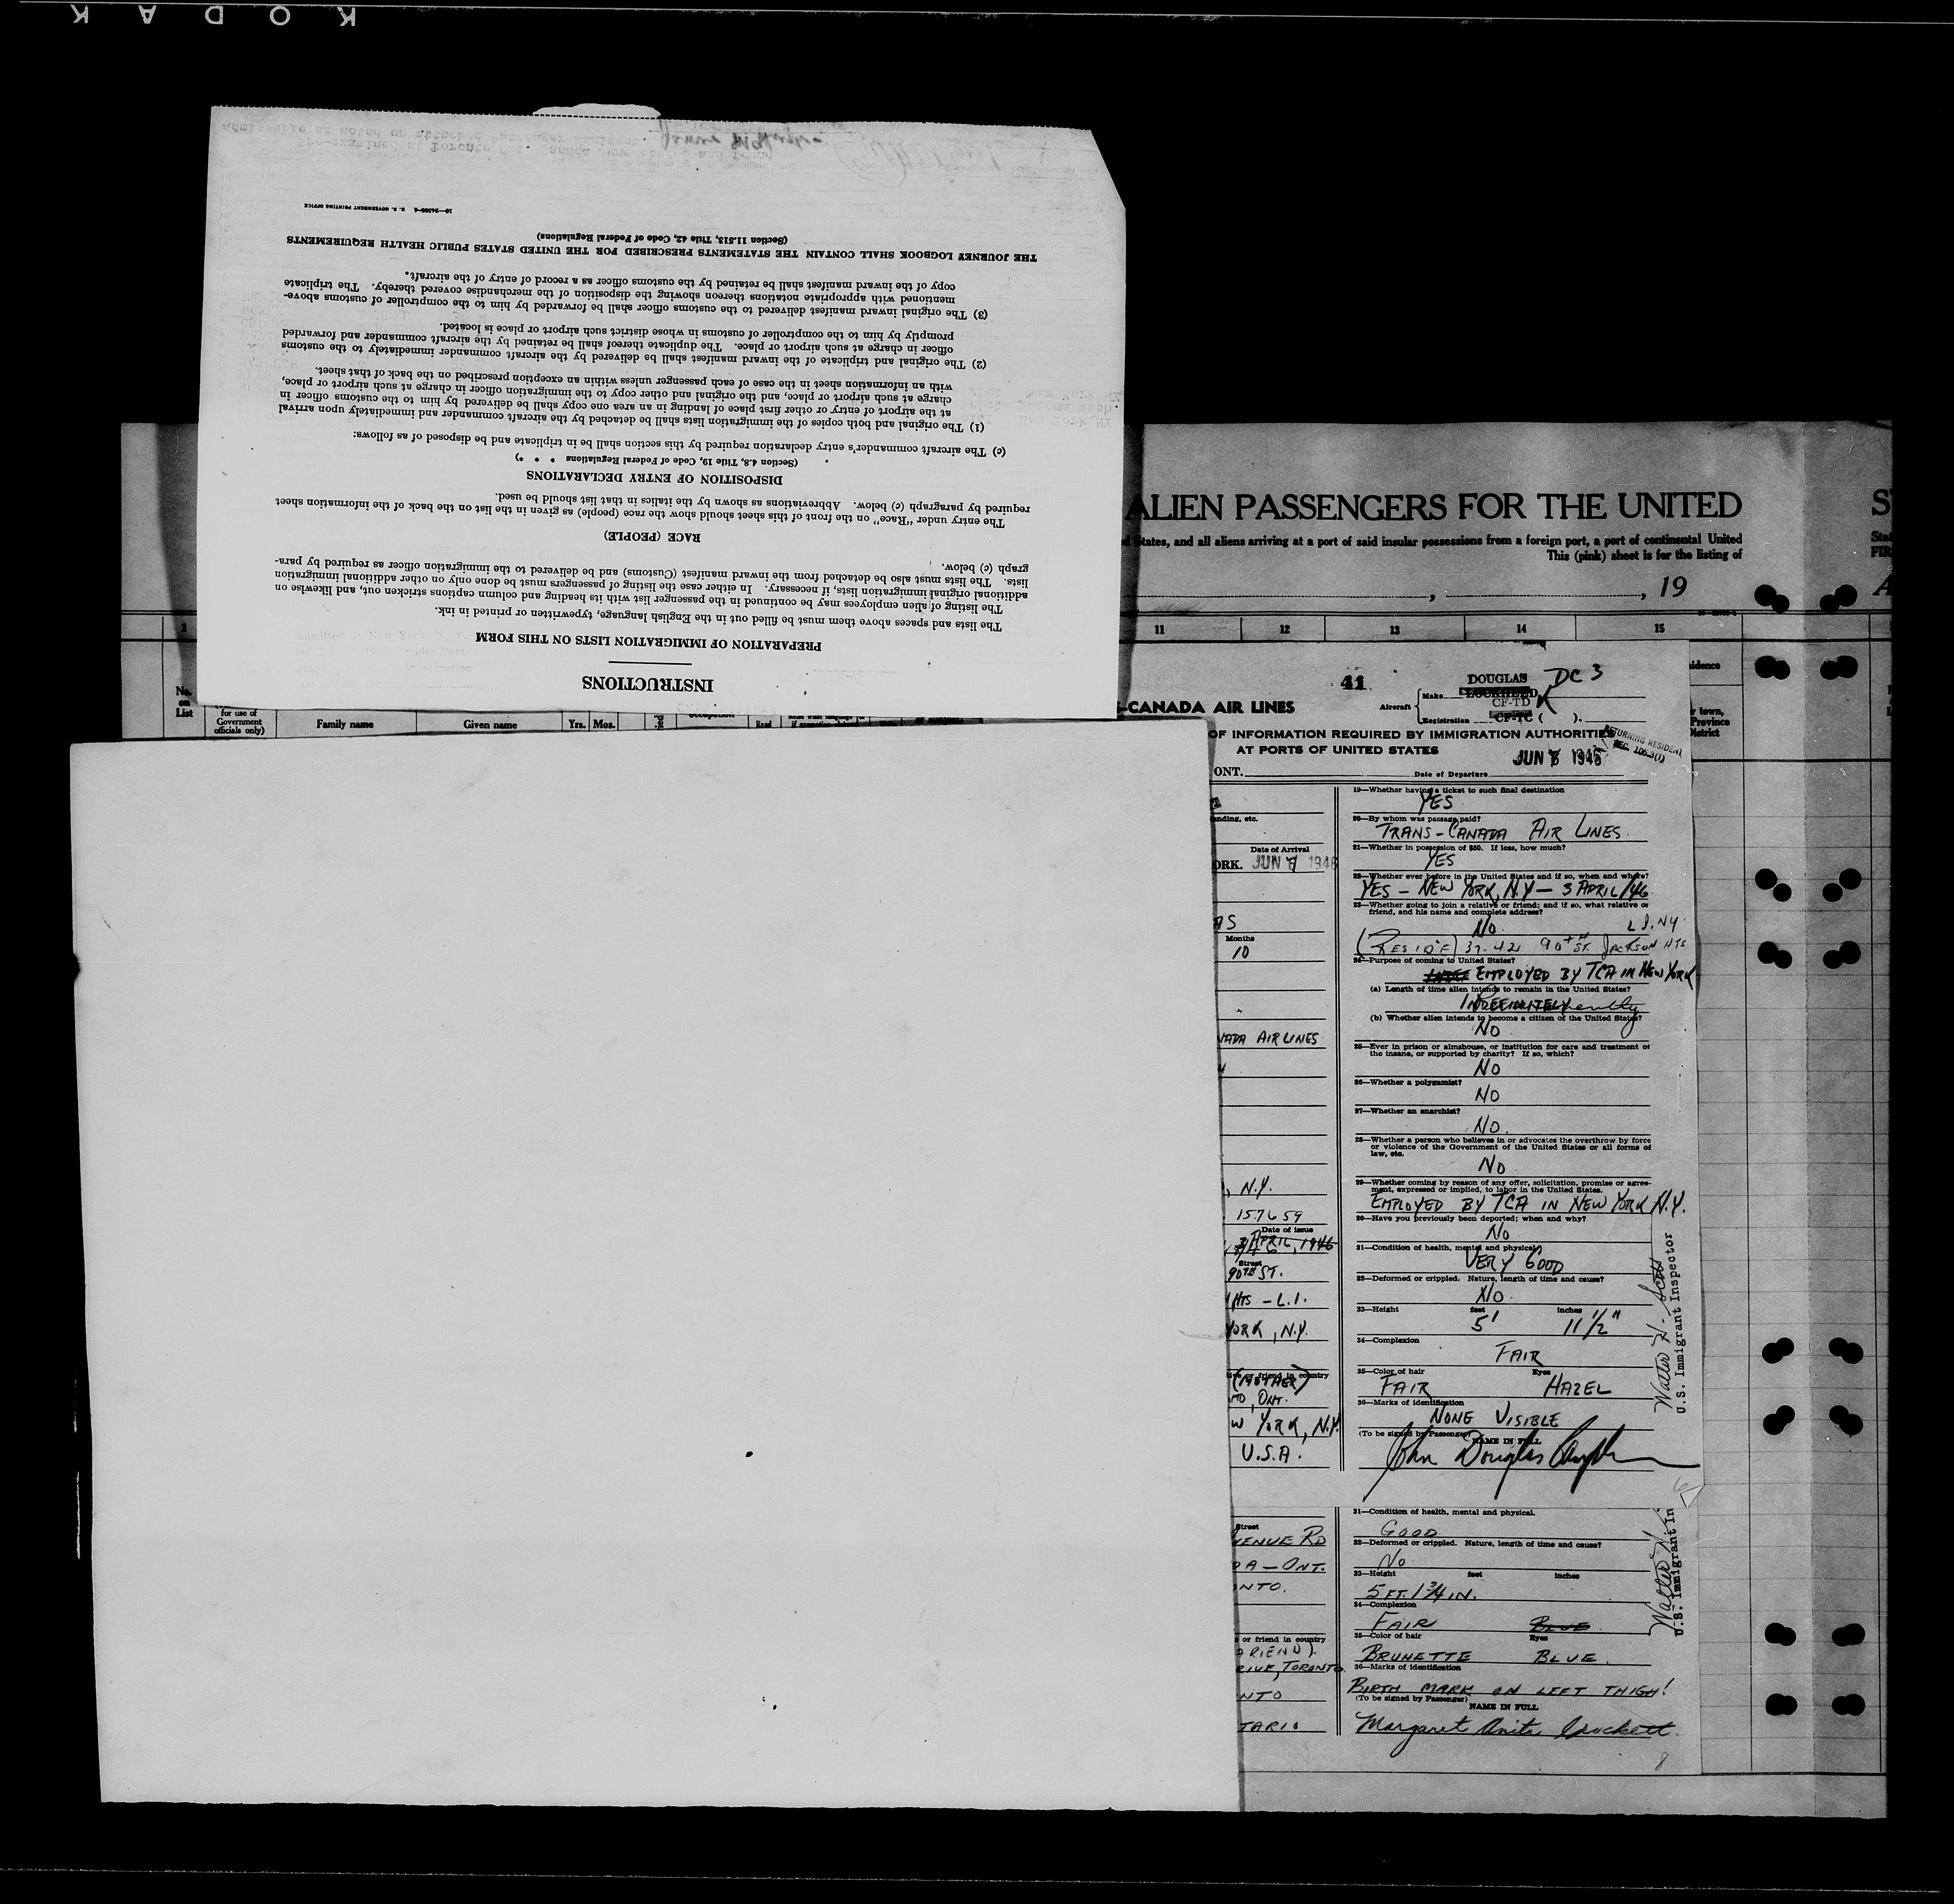 KODAK
INSTRUCTIONS
PREPARATION OF IMMIGRATION LISTS ON THIS FORM
The lists and spaces above them must be filled out in the English language, typewritten or printed in ink.
The listing of alien employees may be continued in the passenger list with its heading and column captions stricken out, and likewise on
additional original immigration lists, if necessary. In either case the listing of passengers must be done only on other additional immigration
lists. The lists must also be detached from the inward manifest (Customs) and be delivered to the immigration officer as required by para-
graph (c) below.
RACE (PEOPLE)
The entry under "Race" on the front of this sheet should show the race (people) as given in the list on the back of the information sheet
required by paragraph (c) below. Abbreviations as shown by the italics in that list should be used.
DISPOSITION OF ENTRY DECLARATIONS
(Section 4.8, Title 19, Code of Federal Regulations * * *)
(c) The aircraft commander's entry declaration required by this section shall be in triplicate and be disposed of as follows:
(1) The original and both copies of the immigration lists shall be detached by the aircraft commander and immediately upon arrival
at the airport of entry or other first place of landing in an area one copy shall be delivered by him to the customs officer in
charge at such airport or place, and the original and other copy to the immigration officer in charge at such airport or place,
with an information sheet in the case of each passenger unless within an exception prescribed on the back of that sheet.
(2) The original and triplicate of the inward manifest shall be delivered by the aircraft commander immediately to the customs
officer in charge at such airport or place. The duplicate thereof shall be retained by the aircraft commander and forwarded
promptly by him to the comptroller of customs in whose district such airport or place is located.
(3) The original inward manifest delivered to the customs officer shall be forwarded by him to the comptroller of customs above-
mentioned with appropriate notations thereon showing the disposition of the merchandise covered thereby. The triplicate
copy of the inward manifest shall be retained by the customs officer as a record of entry of the aircraft.
THE JOURNEY LOGBOOK SHALL CONTAIN THE STATEMENTS PRESCRIBED FOR THE UNITED STATES PUBLIC HEALTH REQUIREMENTS
(Section 11.513, Title 42, Code of Federal Regulations)
U. S. GOVERNMENT PRINTING OFFICE
ALIEN PASSENGERS FOR THE UNITED
States, and all aliens arriving at a port of said insular possessions from a foreign port, a port of continental United
This (pink) sheet is for the listing of
, , 19
11 12 13 14 15
No. on List
for use of Government officials only)
Family name Given name Yrs. Mos. Read
41
DOUGLAS DC 3
Aircraft Make LOCKHEED
CF-TD K
Registration CF-TC ( ).
-CANADA AIR LINES
OF INFORMATION REQUIRED BY IMMIGRATION AUTHORITIES
AT PORTS OF UNITED STATES
RETURNING RESIDENT
JUN 1946
ONT. Date of Departure
anding, etc.
Date of Arrival
ORK. JUN 1946
AS
Months
10
NADA AIR LINES
, N.Y.
157659
Date of issue
APRIL, 1946
Street
90TH ST.
HTS - L.I.
YORK, N.Y.
ive or friend in country
(MOTHER)
TO, ONT.
W YORK, N.Y.
U.S.A.
19—Whether having a ticket to such final destination
YES
20—By whom was passage paid?
TRANS-CANADA AIR LINES.
21—Whether in possession of $50. If less, how much?
YES
22—Whether ever before in the United States and if so, when and where?
YES - NEW YORK, N.Y - 3 APRIL/46
23—Whether going to join a relative or friend; and if so, what relative or
friend, and his name and complete address?
NO. L I. NY.
(RESIDE) 37-42 90TH ST. JACKSON HTS
24—Purpose of coming to United States?
EMPLOYED BY TCA IN NEW YORK
(a) Length of time alien intends to remain in the United States?
INDEFINITELY
(b) Whether alien intends to become a citizen of the United States?
NO
25—Ever in prison or almshouse, or institution for care and treatment of
the insane, or supported by charity? If so, which?
NO
26—Whether a polygamist?
NO
27—Whether an anarchist?
NO.
28—Whether a person who believes in or advocates the overthrow by force
or violence of the Government of the United States or all forms of
law, etc.
NO
29—Whether coming by reason of any offer, solicitation, promise or agree-
ment, expressed or implied, to labor in the United States.
EMPLOYED BY TCA IN NEW YORK N.Y.
30—Have you previously been deported; when and why?
NO
31—Condition of health, mental and physical?
VERY GOOD
32—Deformed or crippled. Nature, length of time and cause?
NO.
33—Height feet inches
5' 11 1/2"
34—Complexion
FAIR
35—Color of hair Eyes
FAIR HAZEL
36—Marks of identification
NONE VISIBLE
(To be signed by Passenger) NAME IN FULL
John Douglas
Walter H. Scott
U.S. Immigrant Inspector
Street
VENUE RD
DA - ONT.
NTO.
or friend in country
RIEND).
RIVE, TORONTO
NTO
TARIO
31—Condition of health, mental and physical.
GOOD
32—Deformed or crippled. Nature, length of time and cause?
NO
33—Height feet inches
5 FT. 1 3/4 IN.
34—Complexion
FAIR BLUE
35—Color of hair Eyes
BRUNETTE BLUE.
36—Marks of identification
BIRTH MARK ON LEFT THIGH!
(To be signed by Passenger) NAME IN FULL
Margaret Anita Crockett.
Walter H.
U.S. Immigrant In
8